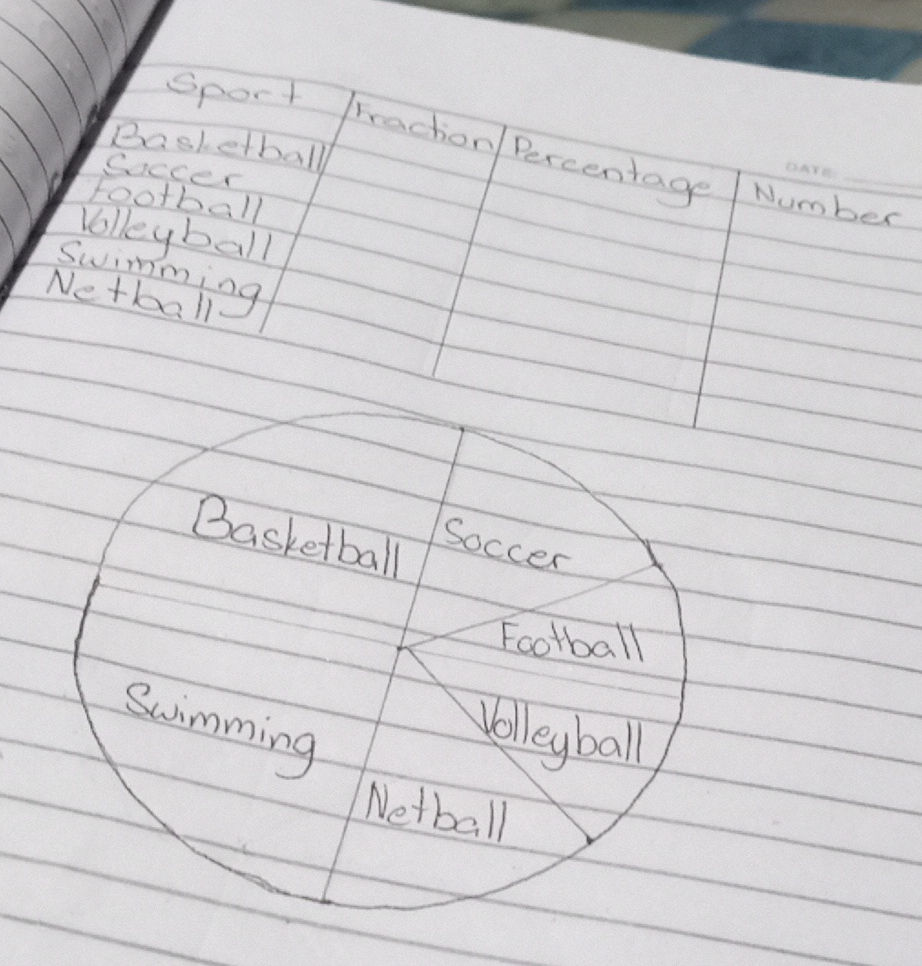 DATE
Sport Fraction Percentage Number
Basketball
Soccer
Football
Volleyball
Swimming
Netball
Basketball Soccer
Football
Swimming Volleyball
Netball